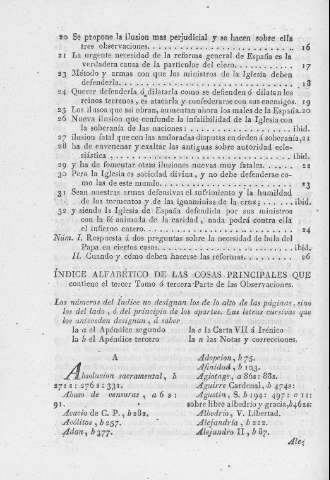 20 Se propone la ilusion mas perjudicial y se hacen sobre ella
tres observaciones. . . . . . . . . . . . . . . . . . . . . . 16
21 La urgente necesidad de la reforma general de España es la
verdadera causa de la particular del clero. . . . . . . . . . 17
23 Método y armas con que los ministros de la Iglesia deben
defenderla. . . . . . . . . . . . . . . . . . . . . . . . . . 18
24 Querer defenderla ó dilatarla como se defienden ó dilatan los
reinos terrenos, es atacarla y confederarse con sus enemigos. 19
25 Los ilusos que asi obran, aumentan ahora los males de la España. 20
26 Nueva ilusion que confunde la infalibilidad de la Iglesia con
la soberanía de las naciones: . . . . . . . . . . . . . . . . ibid.
27 ilusion fatal que con las malhadadas disputas en órden á soberanía, 21
28 ha de envenenar y exaltar las antiguas sobre autoridad ecle-
siástica . . . . . . . . . . . . . . . . . . . . . . . . . . ibid.
29 y ha de fomentar otras ilusiones nuevas muy fatales. . . . 22
30 Pero la Iglesia es sociedad divina, y no debe defenderse co-
mo las de este mundo. . . . . . . . . . . . . . . . . . . . . 23
31 Sean nuestras armas defensivas el sufrimiento y la humildad
de los tormentos y de las ignominias de la cruz; . . . . . . ibid.
32 y siendo la Iglesia de España defendida por sus ministros
con la fé animada de la caridad, nada podrá contra ella
el infierno entero. . . . . . . . . . . . . . . . . . . . . . 24
Núm. I. Respuesta á dos preguntas sobre la necesidad de bula del
Papa en ciertos casos. . . . . . . . . . . . . . . . . . . . ibid.
II. Cuando y cómo deben hacerse las reformas. . . . . . . . . 26
ÍNDICE ALFABÉTICO DE LAS COSAS PRINCIPALES QUE
contiene el tercer Tomo ó tercera Parte de las Observaciones.
Los números del Índice no designan los de lo alto de las páginas, sino
los del lado, ó del principio de los apartes. Las letras cursivas que
los anteceden designan, á saber
la a el Apéndice segundo
la b el Apéndice tercero
la e la Carta VII á Irénico
la n las Notas y correcciones.
A
Absolucion sacramental, b
271: 276: 331.
Abuso de censuras, a 62:
91.
Acacio de C. P., b 282.
Acólitos, b 257.
Adan, b 377.
Adopcion, b 75.
Afinidad, b 103.
Agiotage, a 862: 881.
Aguirre Cardenal, b 474:
Agustin, S. b 194: 497: a 11:
sobre libre albedrío y gracia, b 462:
Albedrío, V. Libertad.
Alejandría, b 212.
Alejandro II, b 87.
Ale-